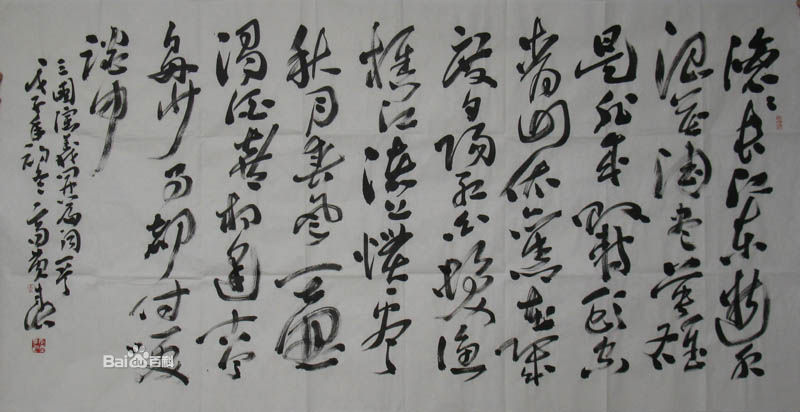 滚滚长江东逝水
浪花淘尽英雄
是非成败转头空
青山依舊在几
度夕阳红白发渔
樵江渚上惯看
秋月春风一壶
浊酒喜相逢古今
多少事都付笑
谈中
三国演义开篇词一首
戊子年初冬
Bai百科